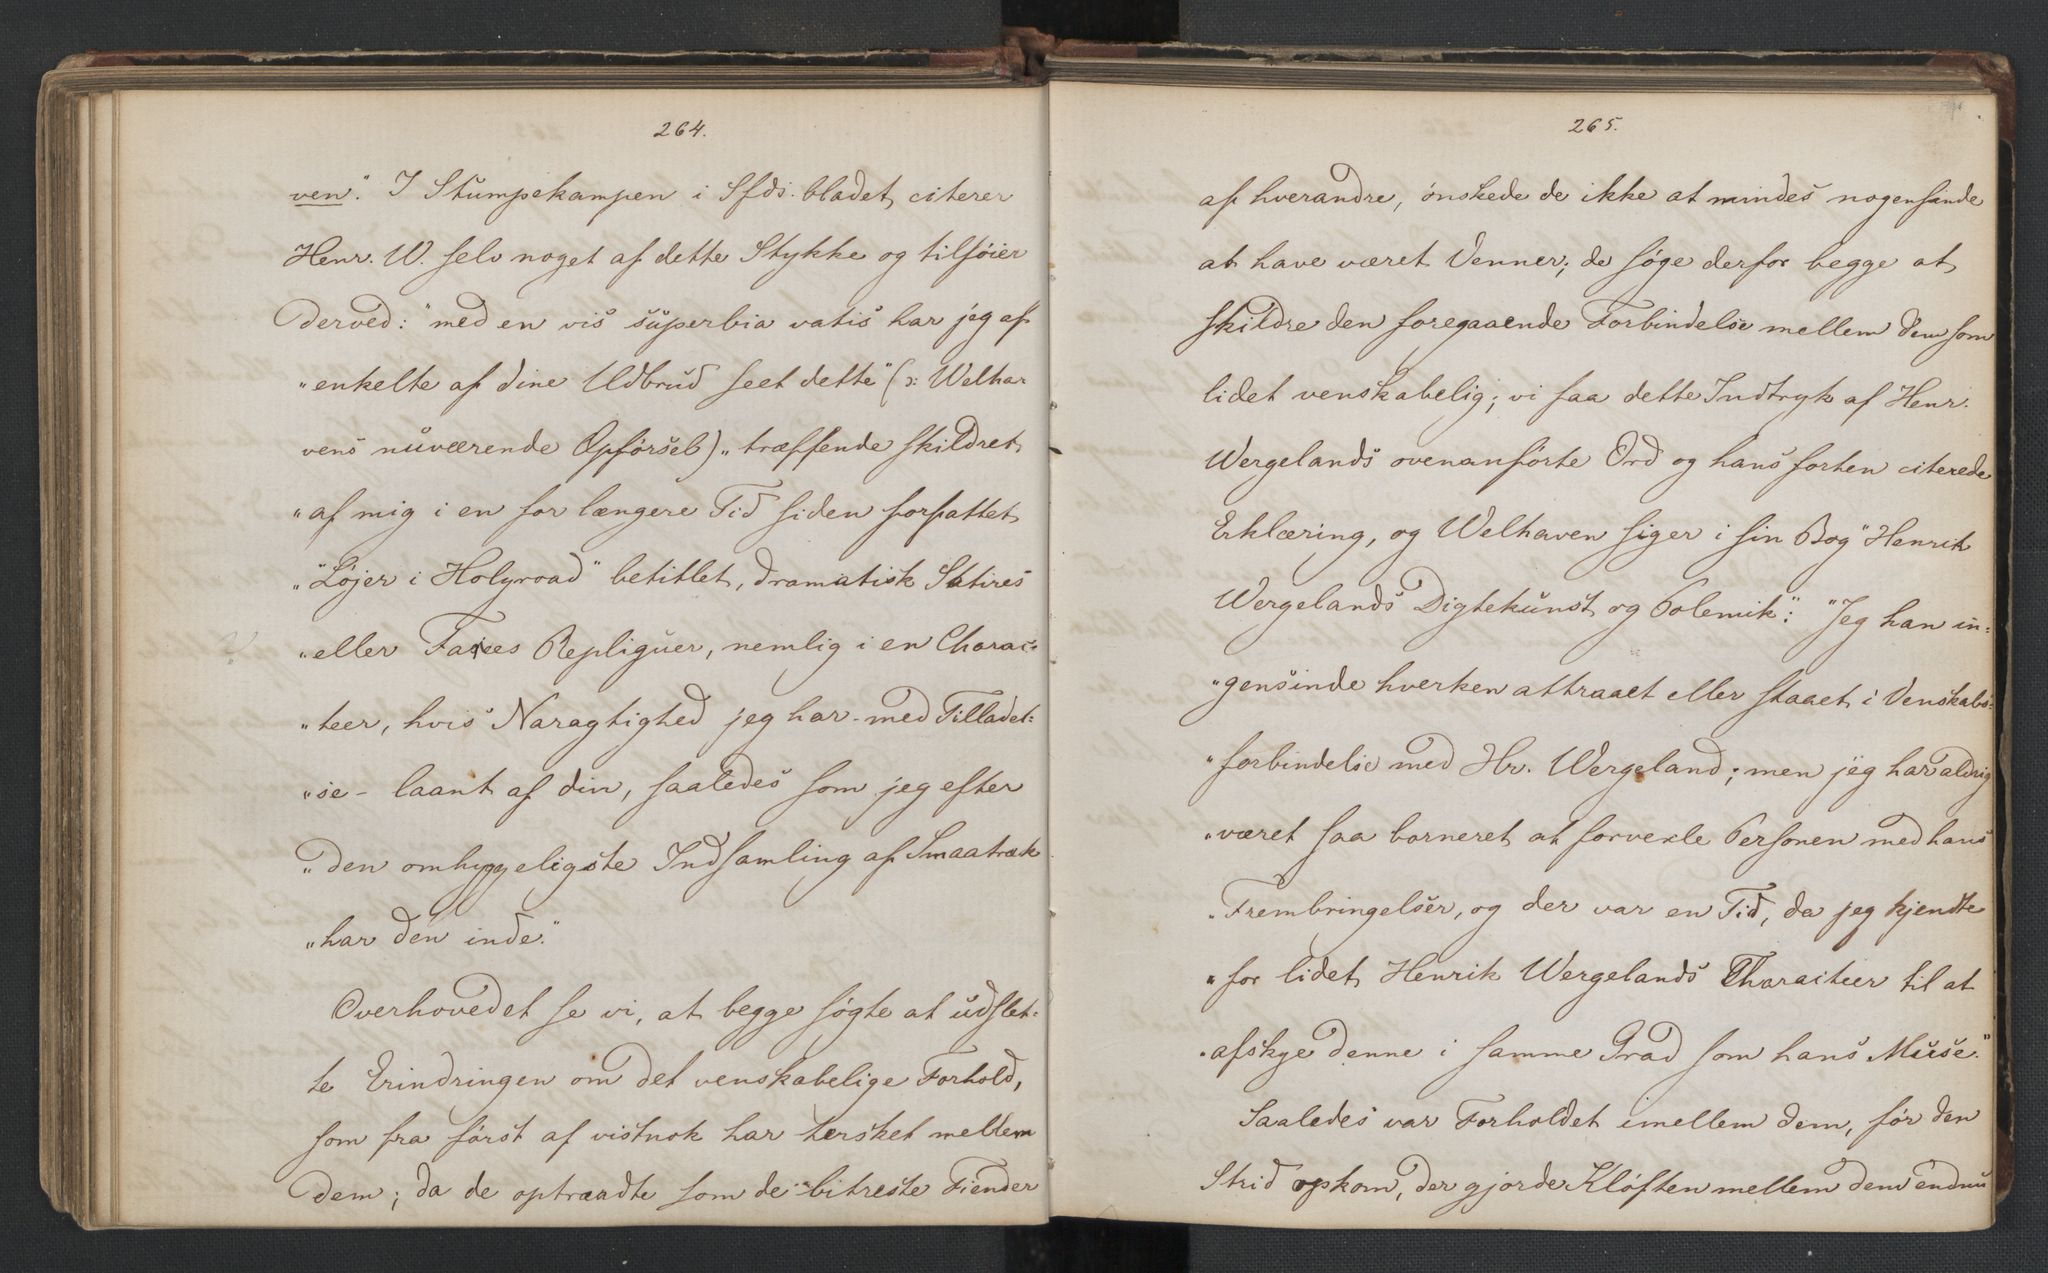 264.
ven". I Stumpekampen i Sfds. bladet citerer
Henr. W. selv noget af dette Stykke og tilføier
derved: "med en vis superbia vatis har jeg af
"enkelte af dine Udbrud seet dette" (ɔ: Welha-
vens nuværende Opførsel) "træffende skildret
"af mig i en for længere Tid siden forfattet
""Løjer i Holyroad" betitlet, dramatisk Satires
"eller Farces Repliquer, nemlig i en Charac-
"teer, hvis Naragtighed jeg har - med Tilladel-
"se - laant af din, saaledes som jeg efter
"den omhyggeligste Indsamling af Smaatræk
"har den inde."
Overhovedet se vi, at begge søgte at udslet-
te Erindringen om det venskabelige Forhold,
som fra først af vistnok har hersket mellem
dem; da de optraadte som de bitreste Fiender
265.
af hverandre, ønskede de ikke at mindes nogensinde
at have været Venner; de søge derfor begge at
skildre den foregaaende Forbindelse mellem dem som
lidet venskabelig; vi saa dette Indtryk af Henr.
Wergelands ovenanførte Ord og hans forten citerede
Erklæring, og Welhaven siger i sin Bog "Henrik
Wergelands Digtekunst og Polemik": "Jeg har in-
"gensinde hverken attraaet eller staaet i Venskabs-
"forbindelse med Hr. Wergeland; men jeg har aldrig
"været saa borneret at forvexle Personen med hans
"Frembringelser, og der var en Tid, da jeg kjendte
"for lidet Henrik Wergelands Characteer til at
"afskye denne i samme Grad som hans Muse."
Saaledes var Forholdet imellem dem, før den
Strid opkom, der gjorde Kløften mellem dem endnu